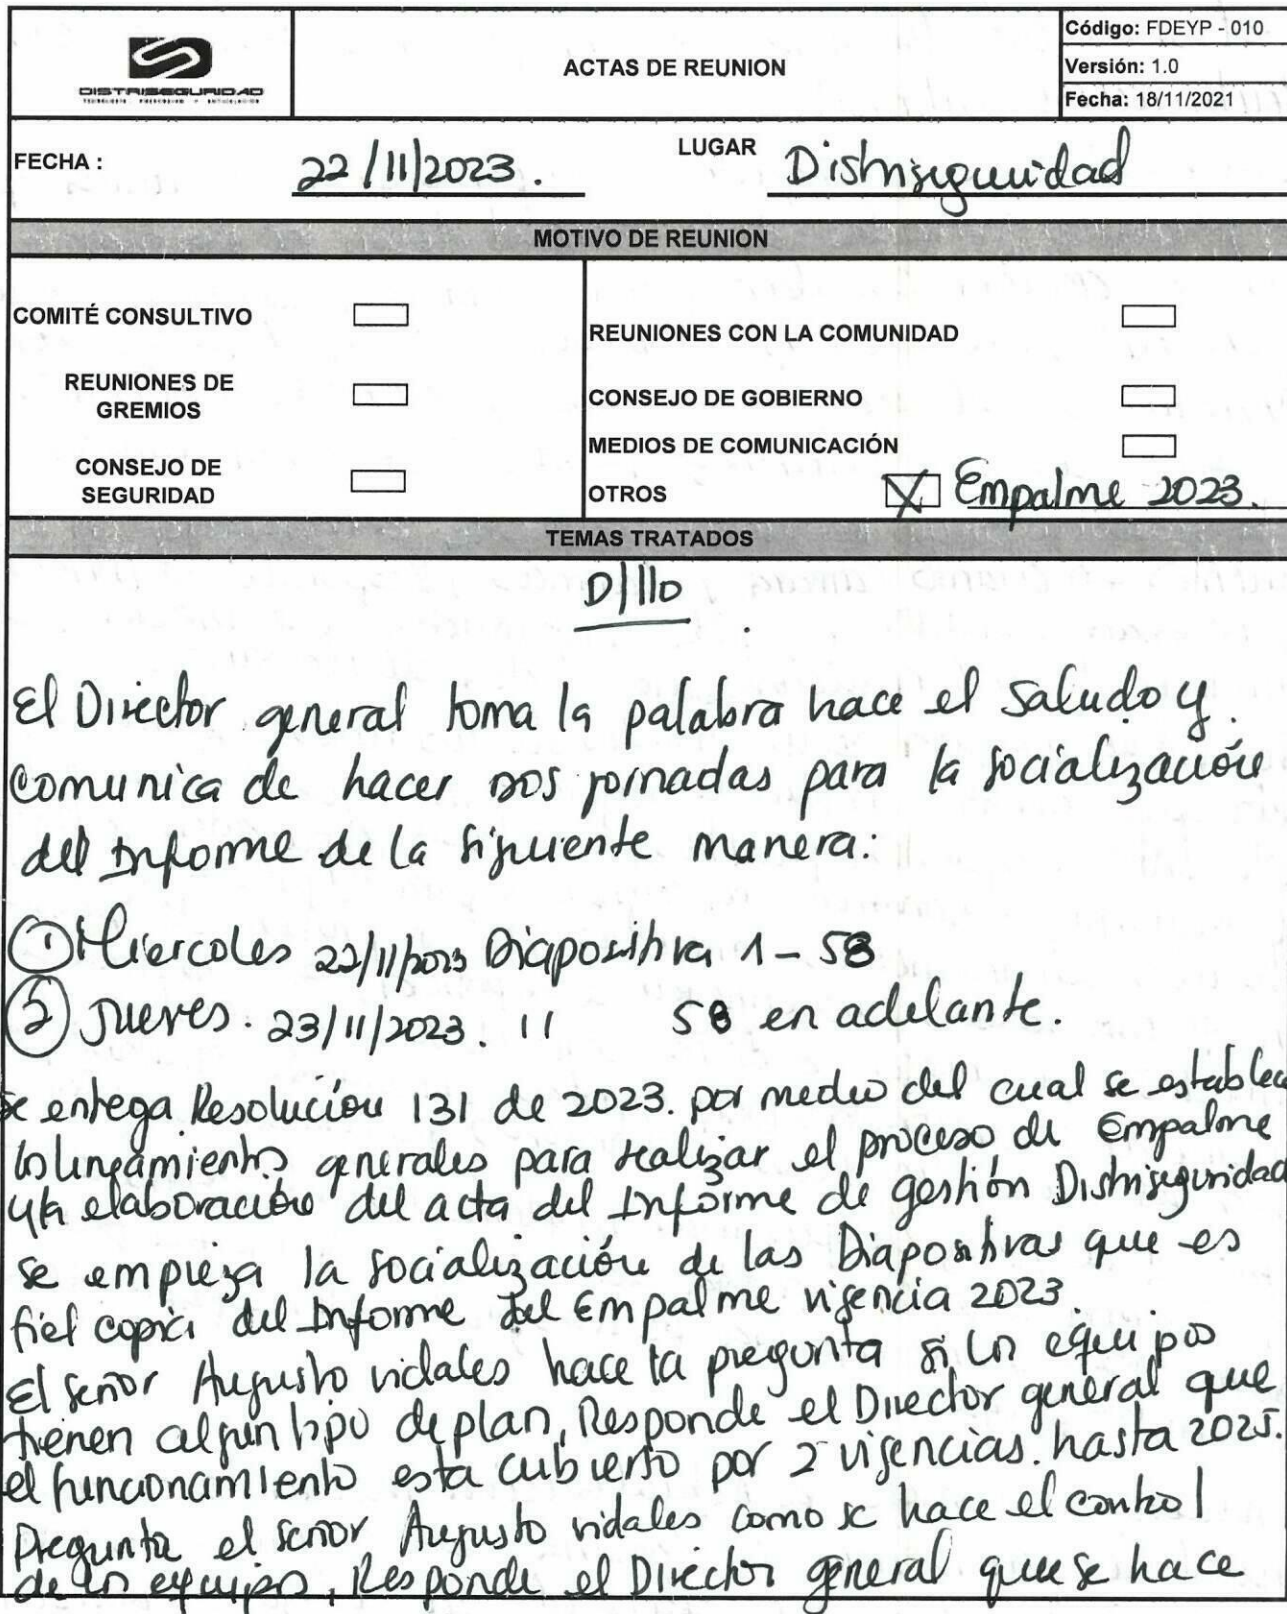 DISTRISEGURIDAD
ACTAS DE REUNION
Código: FDEYP - 010
Versión: 1.0
Fecha: 18/11/2021
FECHA : 22/11/2023.
LUGAR Distriseguridad
MOTIVO DE REUNION
COMITÉ CONSULTIVO
REUNIONES DE
GREMIOS
CONSEJO DE
SEGURIDAD
REUNIONES CON LA COMUNIDAD
CONSEJO DE GOBIERNO
MEDIOS DE COMUNICACIÓN
OTROS X Empalme 2023.
TEMAS TRATADOS
D/llo
El Director general toma la palabra hace el saludo y
comunica de hacer dos jornadas para la socialización
del Informe de la siguiente manera:
① Miercoles 22/11/2023 Diapositiva 1 - 58
② Jueves. 23/11/2023. 11 58 en adelante.
se entega Resolución 131 de 2023. por medio del cual se establec
los lineamientos generales para realizar el proceso de Empalme
y la elaboración del acta del Informe de gestión Distriseguridad
se empieza la socialización de las Diapositivas que es
fiel copia del Informe del Empalme vigencia 2023.
El señor Augusto vidales hace la pregunta si los equipos
tienen algun tipo de plan, Responde el Director general que
el funcionamiento esta cubierto por 2 vigencias. hasta 2025.
Pregunta el señor Augusto vidales como se hace el control
de los equipos, Responde el Director general que se hace